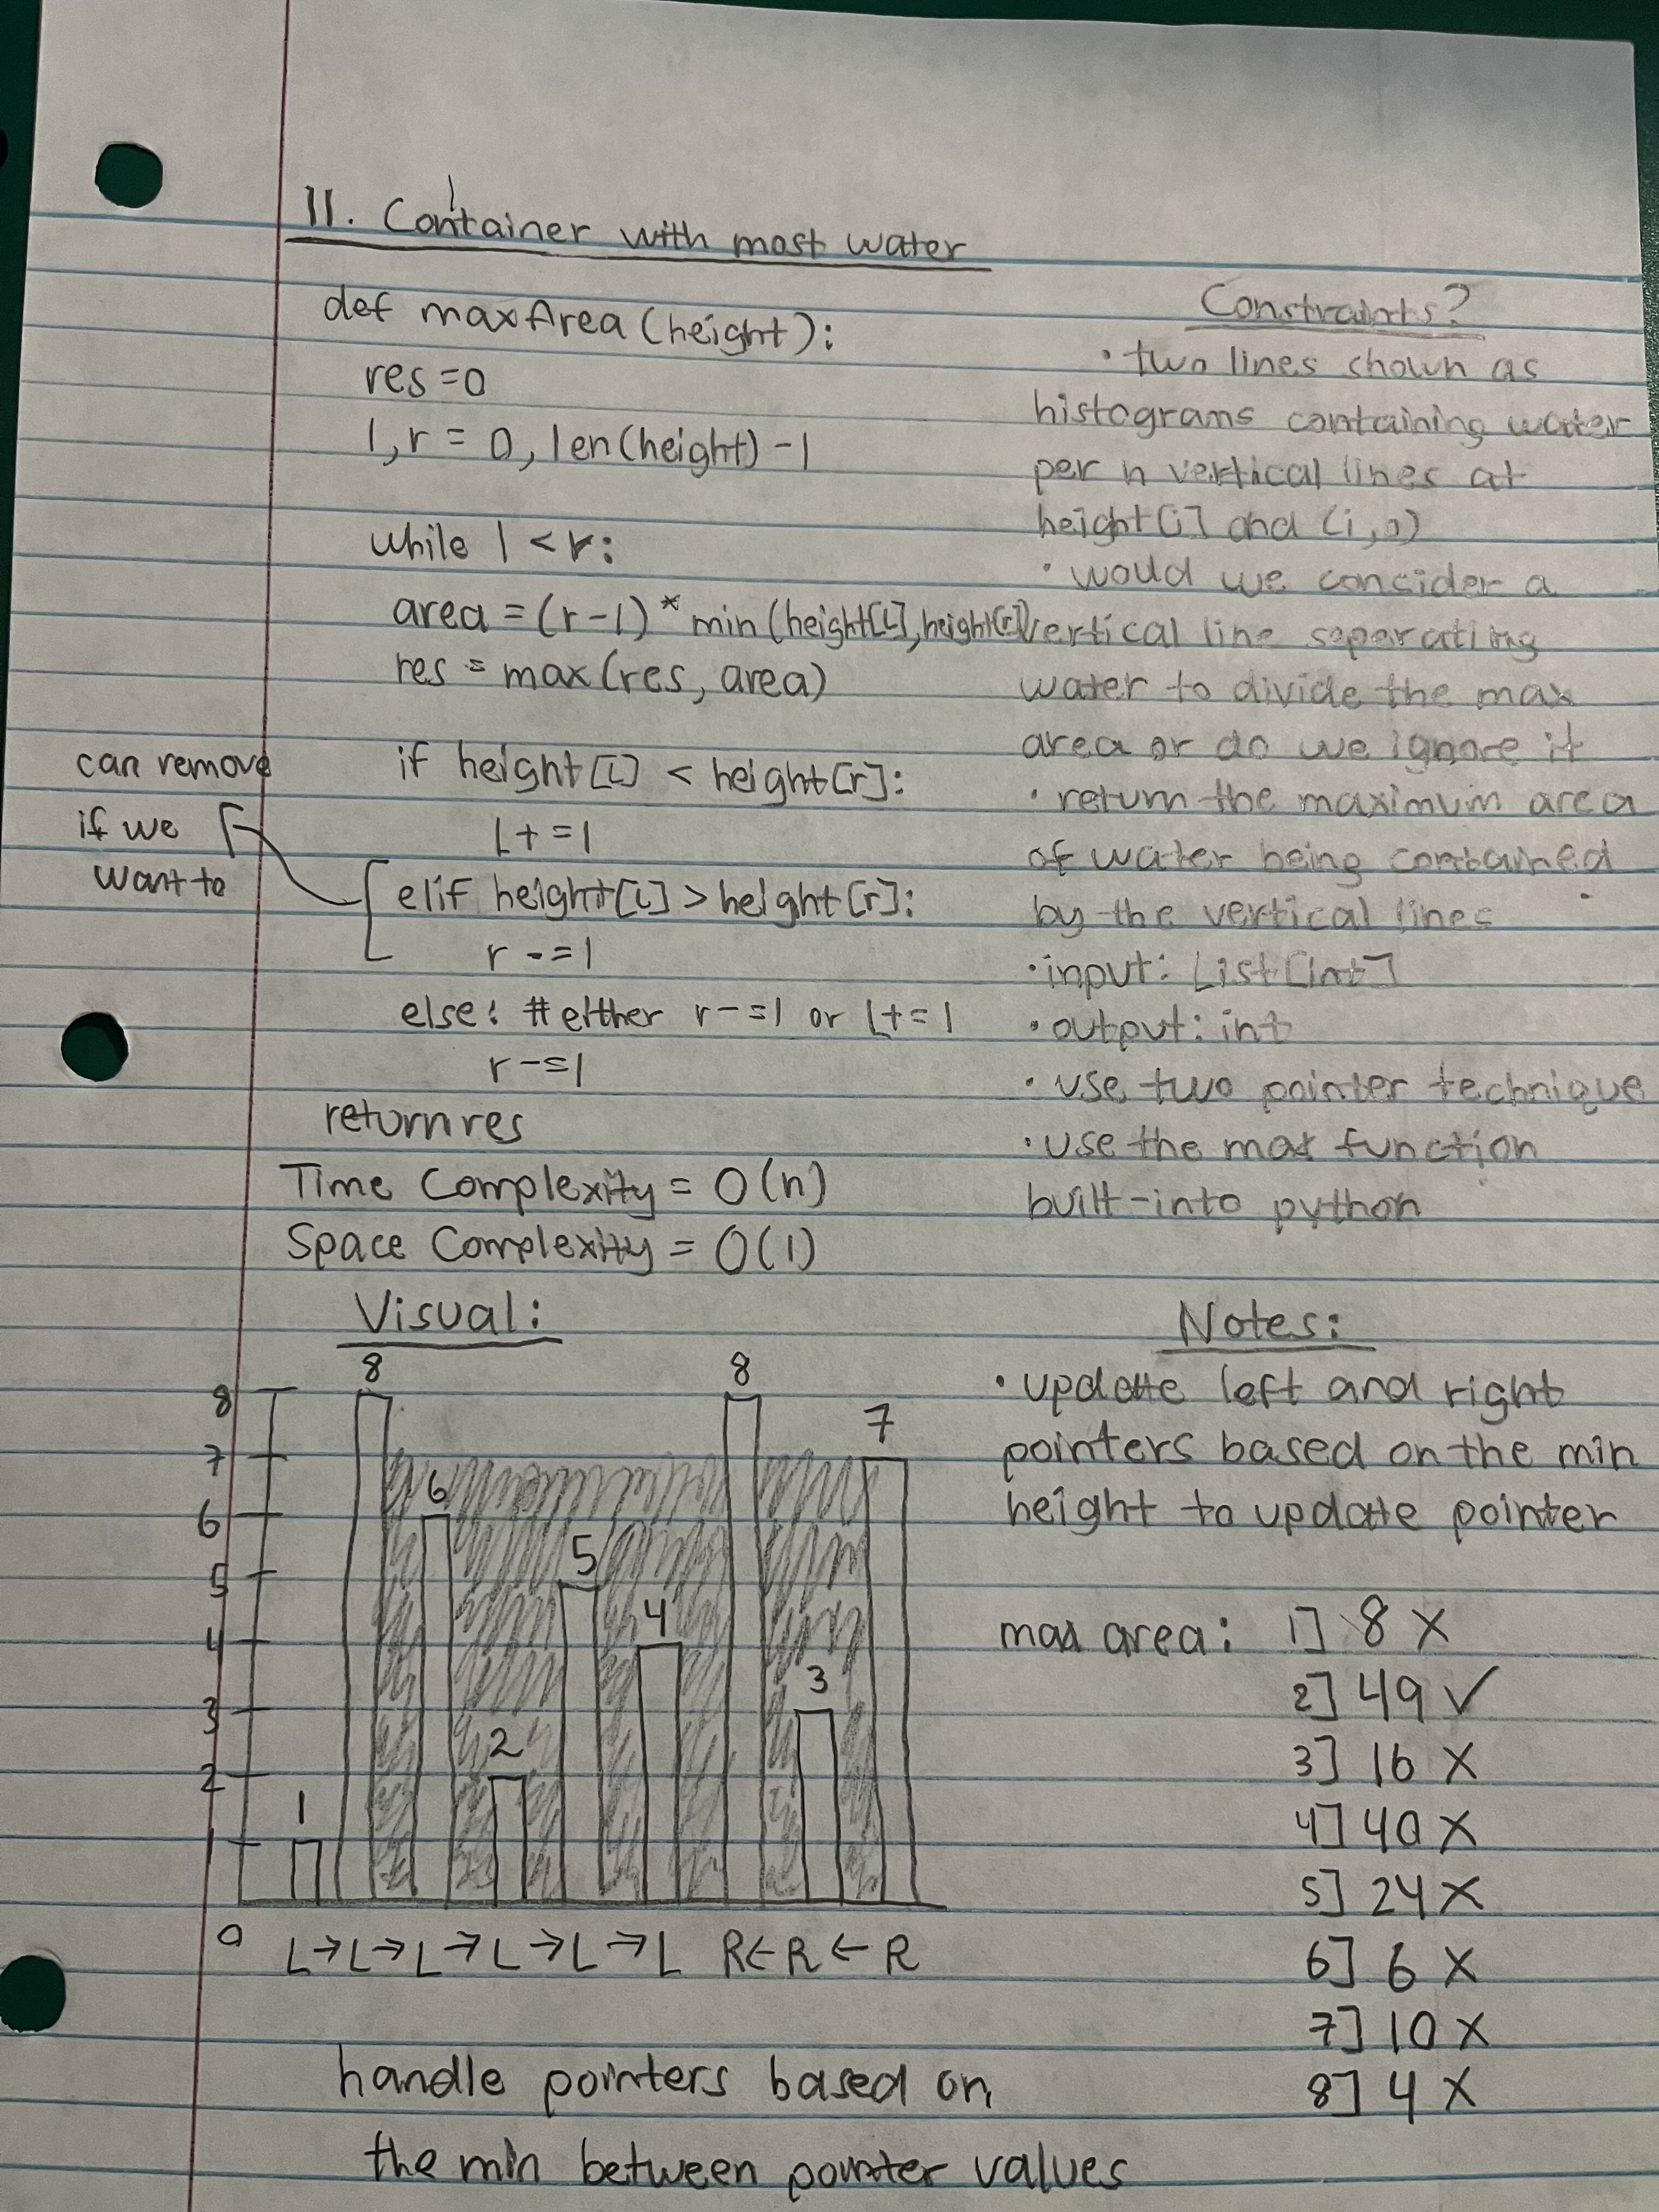 11. Container with most water
def maxArea(height):
res=0
l,r = 0, len(height)-1
while l<r:
area = (r-l)* min(height[L], height[r])
res = max(res, area)
if height[L] < height[r]:
L+=1
elif height[L] > height[r]:
r-=1
else: #either r-=1 or L+=1
r-=1
return res
can remove
if we
want to
Time Complexity = O(n)
Space Complexity = O(1)
Constraints?
• two lines shown as
histograms containing water
per n vertical lines at
height[i] and (i,0)
• would we consider a
vertical line seperating
water to divide the max
area or do we ignore it
• return the maximum area
of water being contained
by the vertical lines
• input: List[int]
• output: int
• use two pointer technique
• use the max function
built-into python
Visual:
8
8
8
7
7
6
6
5
5
4
4
3
3
2
2
1
1
0
L→L→L→L→L→L R←R←R
handle pointers based on
the min between pointer values
Notes:
• update left and right
pointers based on the min
height to update pointer
max area: 1] 8 X
2] 49 ✓
3] 16 X
4] 40 X
5] 24 X
6] 6 X
7] 10 X
8] 4 X